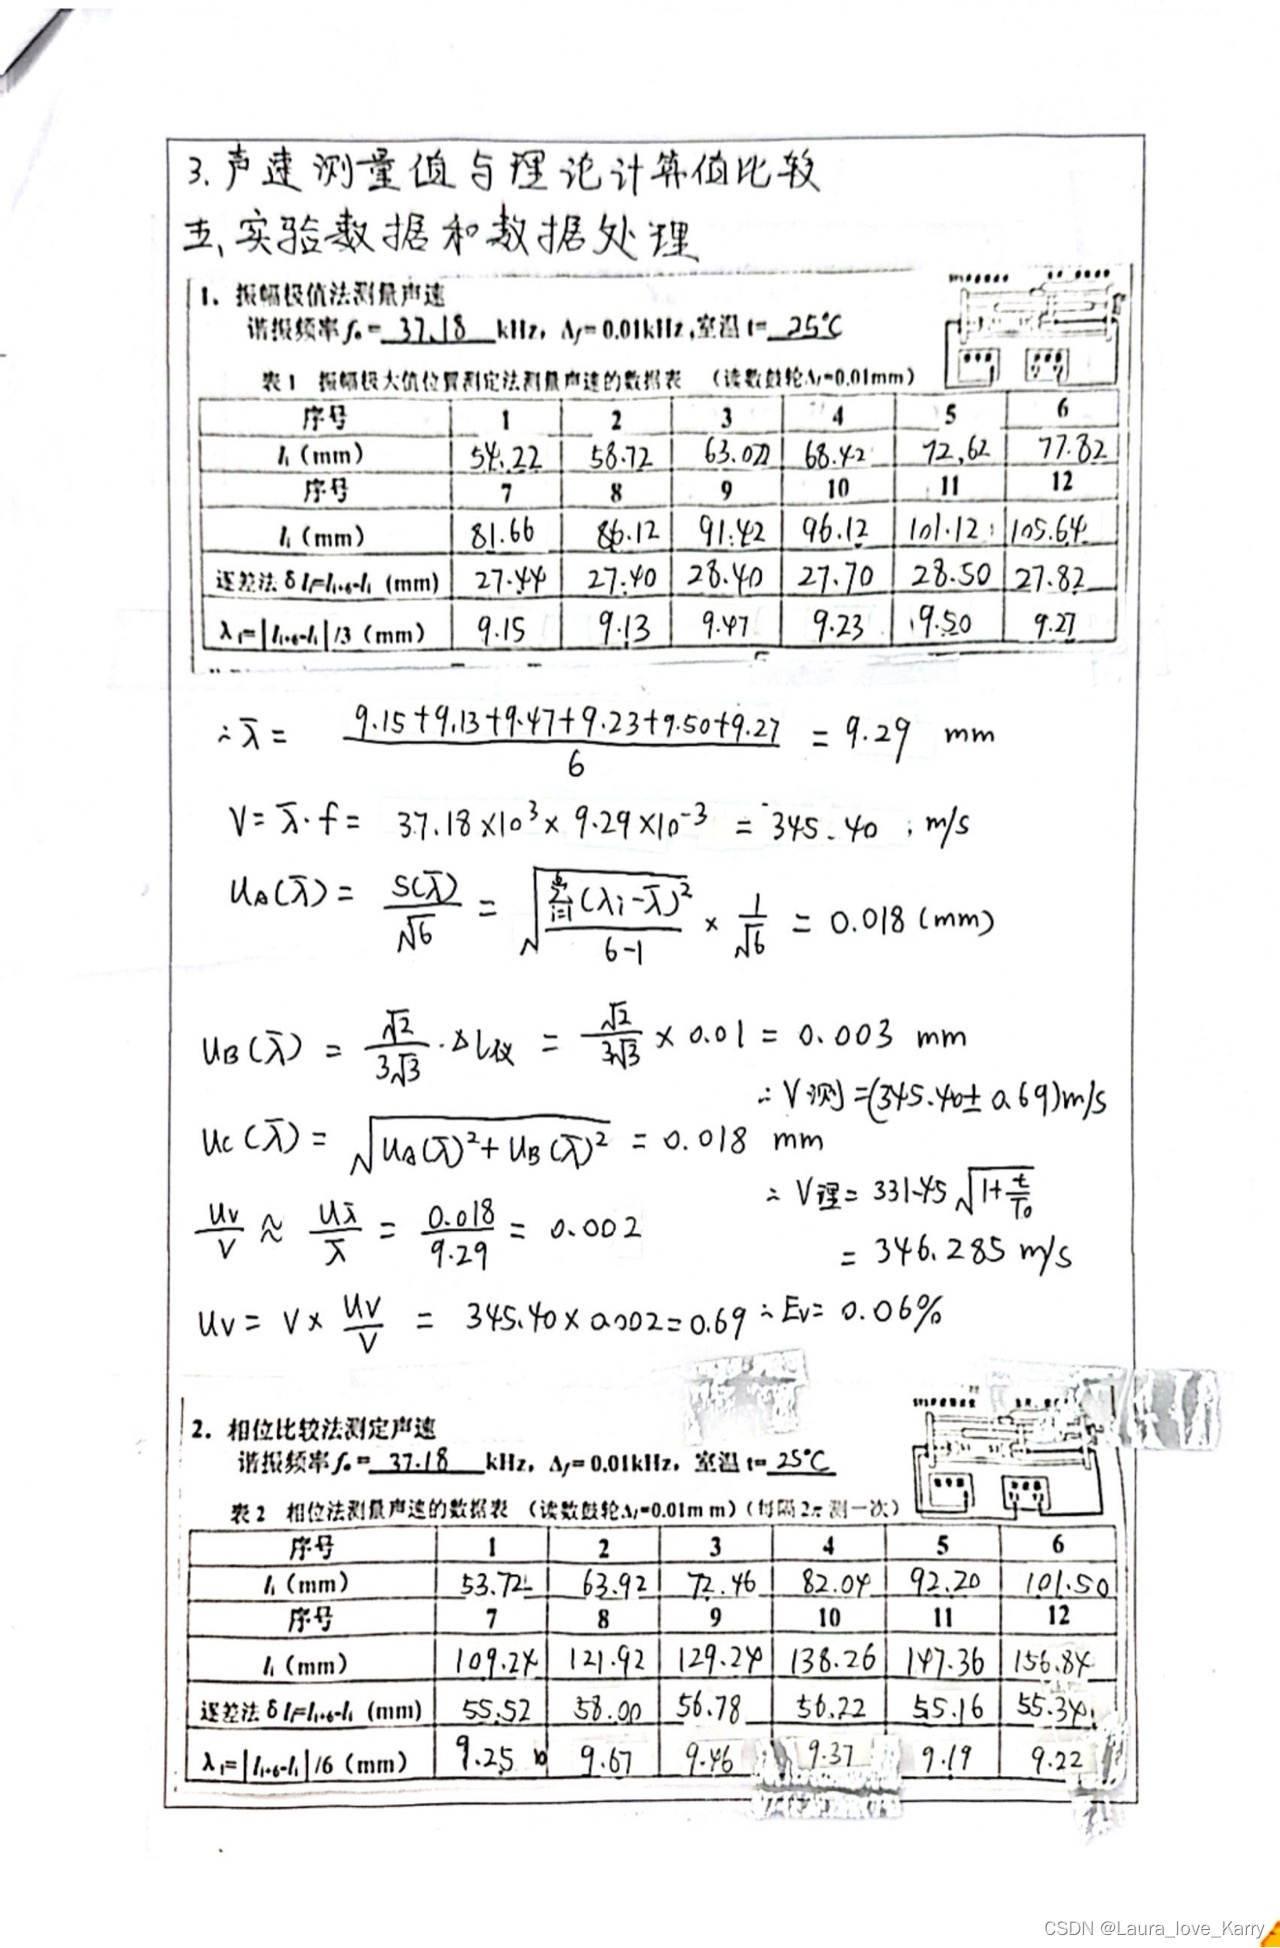 3. 声速测量值与理论计算值比较
五、实验数据和数据处理
1. 振幅极值法测量声速
谐振频率f₀= 37.18 kHz, Δf= 0.01kHz,室温 t= 25°C
表1 振幅极大值位置测定法测量声速的数据表 (读数鼓轮Δl=0.01mm)
序号 1 2 3 4 5 6
lᵢ (mm) 54.22 58.72 63.02 68.42 72.62 77.82
序号 7 8 9 10 11 12
lᵢ (mm) 81.66 86.12 91.42 96.12 101.12 105.64
逐差法 δlᵢ=lᵢ₊₆-lᵢ (mm) 27.44 27.40 28.40 27.70 28.50 27.82
λᵢ=|lᵢ₊₆-lᵢ|/3 (mm) 9.15 9.13 9.47 9.23 9.50 9.27
∴ λ̄ = (9.15+9.13+9.47+9.23+9.50+9.27)/6 = 9.29 mm
V= λ̄·f= 37.18×10³× 9.29×10⁻³ = 345.40 m/s
uA(λ̄) = S(λ̄)/√6 = √(Σᵢ₌₁⁶(λᵢ-λ̄)²/(6-1)) × 1/√6 = 0.018 (mm)
uB(λ̄) = √2/(3√3)·Δl仪 = √2/(3√3) × 0.01 = 0.003 mm
∴ V测=(345.40±0.69)m/s
uC(λ̄) = √(uA(λ̄)²+uB(λ̄)²) = 0.018 mm
∴ V理= 331.45√(1+t/T₀)
uv/V ≈ uλ̄/λ̄ = 0.018/9.29 = 0.002
= 346.285 m/s
uv= V× uv/V = 345.40×0.002=0.69 ∴Ev= 0.06%
2. 相位比较法测定声速
谐振频率f₀= 37.18 kHz, Δf= 0.01kHz, 室温 t= 25°C
表2 相位法测量声速的数据表 (读数鼓轮Δl=0.01mm)(每隔2π测一次)
序号 1 2 3 4 5 6
lᵢ (mm) 53.72 63.92 72.46 82.04 92.20 101.50
序号 7 8 9 10 11 12
lᵢ (mm) 109.24 121.92 129.24 138.26 147.36 156.84
逐差法 δlᵢ=lᵢ₊₆-lᵢ (mm) 55.52 58.00 56.78 56.22 55.16 55.34
λᵢ=|lᵢ₊₆-lᵢ|/6 (mm) 9.25 9.67 9.46 9.37 9.19 9.22
CSDN @Laura_love_Karry